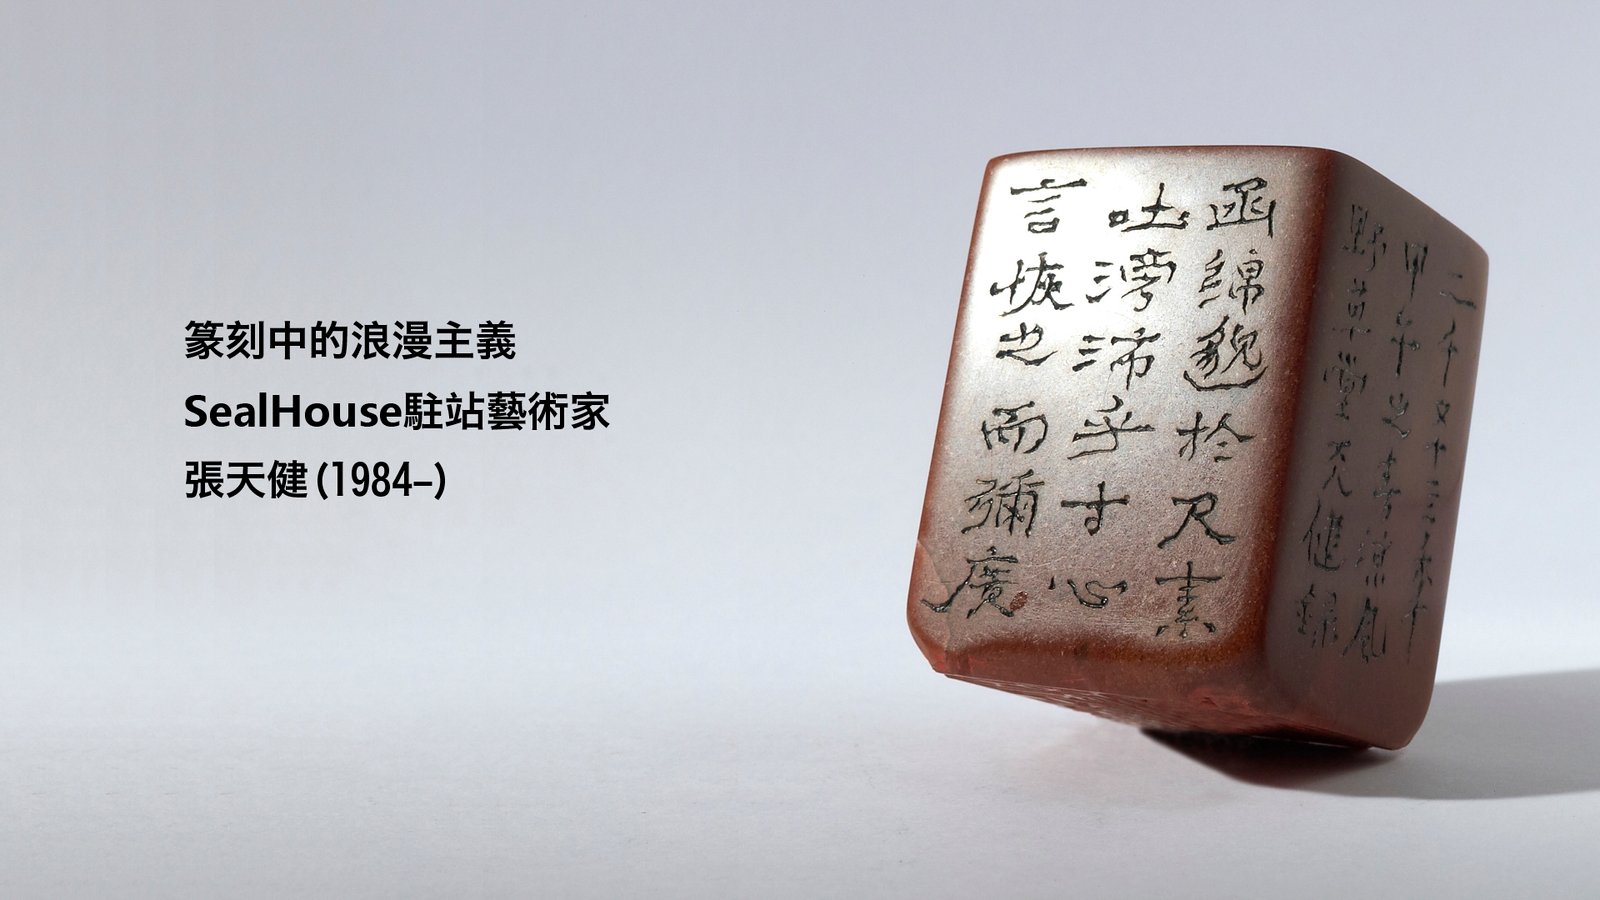 篆刻中的浪漫主義
SealHouse駐站藝術家
張天健(1984–)
函綿邈於尺素
吐滂沛乎寸心
言恢之而彌廣
二千又十三
甲午之春
野草堂天健錄